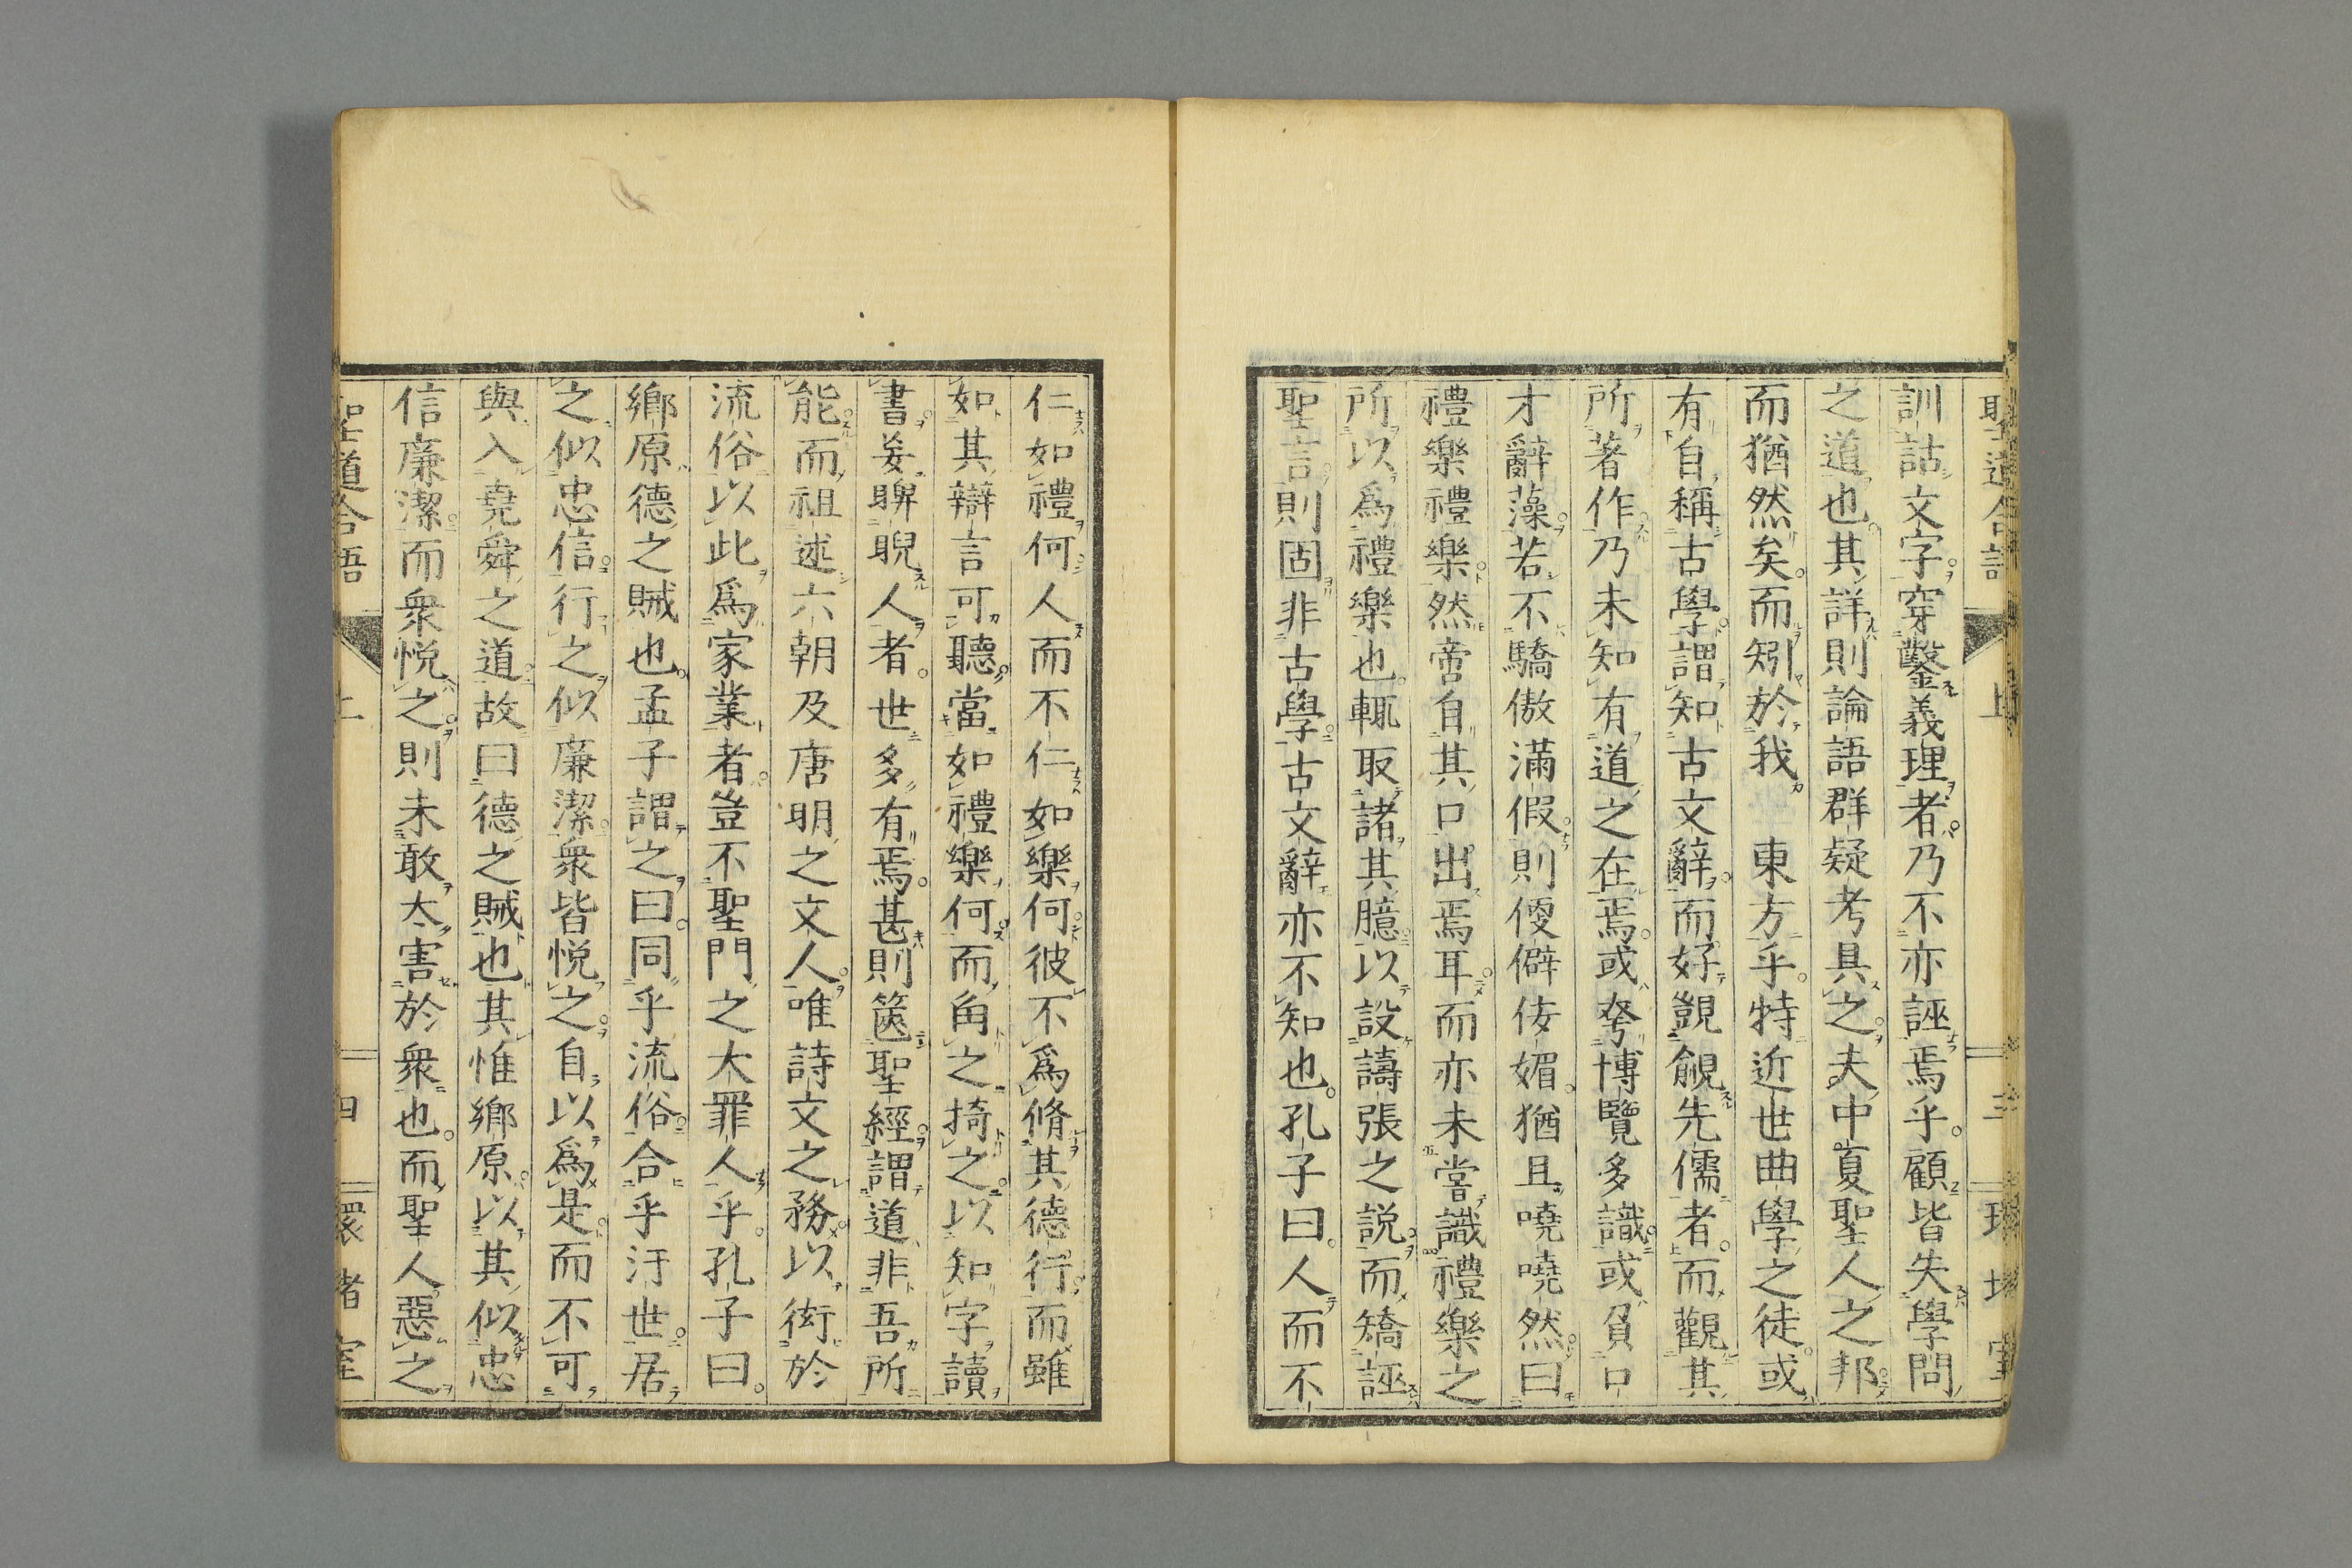 聖道合語 上 三 環堵室
訓詁文字穿鑿義理者乃不亦誣焉乎顧皆失學問
之道也其詳則論語群疑考具之夫中夏聖人之邦
而猶然矣而矧於我 東方乎特近世曲學之徒或
有自稱古學謂知古文辭而好覬覦先儒者而觀其
所著作乃未知有道之在焉或夸博覽多識或負口
才辭藻若不驕傲滿假則便僻佞媚猶且嘵嘵然曰
禮樂禮樂然啻自其口出焉耳而亦未嘗識禮樂之
所以爲禮樂也輒取諸其臆以設譸張之説而矯誣
聖言則固非古學古文辭亦不知也孔子曰人而不
仁如禮何人而不仁如樂何彼不爲脩其德行而雖
如其辯言可聽當如禮樂何而角之掎之以知字讀
書妄睥睨人者世多有焉甚則篋聖經謂道非吾所
能而祖述六朝及唐明之文人唯詩文之務以衒於
流俗以此爲家業者豈不聖門之大罪人乎孔子曰
鄉原德之賊也孟子謂之曰同乎流俗合乎汙世居
之似忠信行之似廉潔衆皆悅之自以爲是而不可
與入堯舜之道故曰德之賊也其惟鄉原以其似忠
信廉潔而衆悅之則未敢太害於衆也而聖人惡之
聖道合語 上 四 環堵室